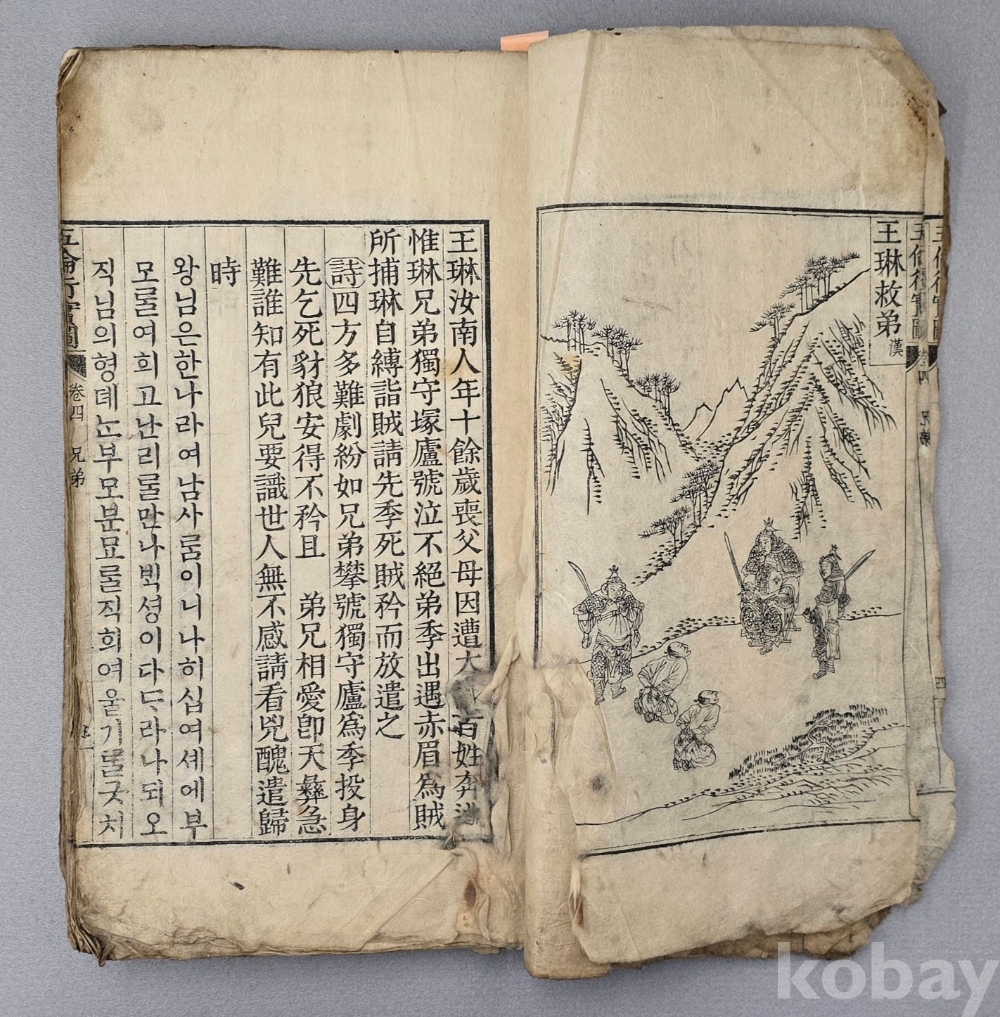 五倫行實圖 卷四 兄弟
王琳救弟 漢
王琳汝南人年十餘歲喪父母因遭大 百姓奔
惟琳兄弟獨守塚廬號泣不絕弟季出遇赤眉爲賊
所捕琳自縛詣賊請先季死賊矜而放遣之
詩四方多難劇紛如兄弟攀號獨守廬爲季投身
先乞死豺狼安得不矜且 弟兄相愛卽天彝急
難誰知有此兒要識世人無不感請看兇醜遣歸
時
왕님은한나라여남사ᄅᆞᆷ이니나히십여셰에부
모ᄅᆞᆯ여희고난리ᄅᆞᆯ만나ᄇᆡᆨ셩이다ᄃᆞ라나되오
직님의형뎨ᄂᆞᆫ부모분묘ᄅᆞᆯ직희여울기ᄅᆞᆯ긋치
五倫行實圖 卷四 兄弟
kobay